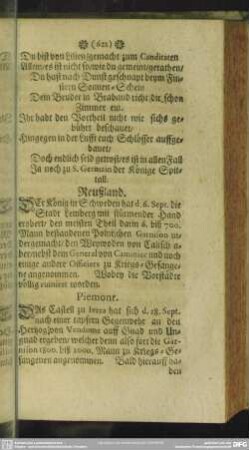 (612)
Du bist von Lilien gemacht zum Candidaten
Allein es ist nicht so wie du gemeint gerathen/
Du hast nach Dunst geschnapt beym Fin-
stern Sonnen-Schein
Dein Bruder in Braband richt dir schon
Zimmer ein.
Ihr habt den Vortheil nicht wie sichs ge-
bührt beschauet/
Hingegen in der Lufft euch Schlösser auffge-
bauet/
Doch endlich seid gewiß es ist in allen Fall
Ja noch zu S. Germain der Könige Spit-
tall.
Reußland.
DEr König in Schweden hat d. 6. Sept. die
Stadt Lemberg mit stürmender Hand
erobert/ den meisten Theil darin 6. biß 700.
Mann bestandenen Polnischen Garnison ni-
dergemacht/ den Weywoden von Calisch a-
ber/ nebst dem General von Caminiec und noch
einige andere Officiers zu Kriegs-Gefange-
ne angenommen. Wobey die Vorstädte
völlig ruiniret worden.
Piemont.
DAs Castell zu Ivrea hat sich d. 18. Sept.
nach einer tapfern Gegenwehr an den
Hertzog von Vendome auff Gnad und Un-
gnad ergeben/ welcher denn also fort die Gar-
nison 1800. biß 2000. Mann zu Kriegs-Ge-
fangenen angenommen. Bald hierauff ha-
ben